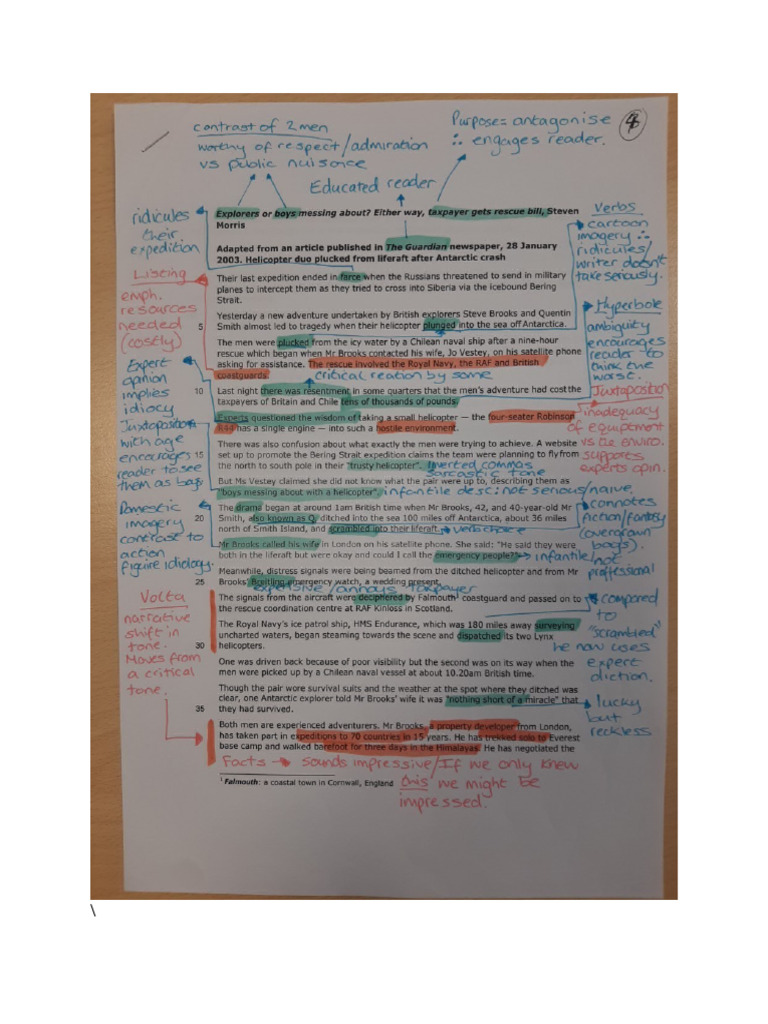 contrast of 2 men
worthy of respect/admiration
vs public nuisance
Purpose = antagonise
∴ engages reader.
4
Educated reader
ridicules
their
expedition
Explorers or boys messing about? Either way, taxpayer gets rescue bill, Steven
Morris
Adapted from an article published in The Guardian newspaper, 28 January
2003. Helicopter duo plucked from liferaft after Antarctic crash
Verbs
cartoon
imagery ∴
ridicules/
writer doesn't
take seriously.
Listing
emph.
resources
needed
(costly)
Their last expedition ended in farce when the Russians threatened to send in military
planes to intercept them as they tried to cross into Siberia via the icebound Bering
Strait.
Yesterday a new adventure undertaken by British explorers Steve Brooks and Quentin
5 Smith almost led to tragedy when their helicopter plunged into the sea off Antarctica.
The men were plucked from the icy water by a Chilean naval ship after a nine-hour
rescue which began when Mr Brooks contacted his wife, Jo Vestey, on his satellite phone
asking for assistance. The rescue involved the Royal Navy, the RAF and British
coastguards.
Hyperbole
ambiguity
encourages
reader to
think the
worst.
critical reation by some
Expert
opinion
implies
idiocy
Juxtaposition
with age
encourages
reader to see
them as boys
10 Last night there was resentment in some quarters that the men's adventure had cost the
taxpayers of Britain and Chile tens of thousands of pounds.
Experts questioned the wisdom of taking a small helicopter — the four-seater Robinson
R44 has a single engine — into such a hostile environment.
Juxtaposition
inadequacy
of equiptment
vs the enviro.
supports
experts opin.
There was also confusion about what exactly the men were trying to achieve. A website
15 set up to promote the Bering Strait expedition claims the team were planning to fly from
the north to south pole in their "trusty helicopter".
inverted commas
sarcastic tone
But Ms Vestey claimed she did not know what the pair were up to, describing them as
"boys messing about with a helicopter".
infantile desc: not serious/naive.
Domestic
imagery
contrast to
action
figure idiology.
The drama began at around 1am British time when Mr Brooks, 42, and 40-year-old Mr
20 Smith, also known as Q, ditched into the sea 100 miles off Antarctica, about 36 miles
north of Smith Island, and scrambled into their liferaft.
verb choice
connotes
Action/fantasy
(overgrown
boys).
Mr Brooks called his wife in London on his satellite phone. She said: "He said they were
both in the liferaft but were okay and could I call the emergency people?"
infantile/
not
proffessional
Meanwhile, distress signals were being beamed from the ditched helicopter and from Mr
25 Brooks' Breitling emergency watch, a wedding present.
expensive/annoys taxpayer
Volta
narrative
shift in
tone.
Moves from
a critical
tone.
The signals from the aircraft were deciphered by Falmouth¹ coastguard and passed on to
the rescue coordination centre at RAF Kinloss in Scotland.
The Royal Navy's ice patrol ship, HMS Endurance, which was 180 miles away surveying
uncharted waters, began steaming towards the scene and dispatched its two Lynx
30 helicopters.
compared
to
"scrambled"
he now uses
expert
diction.
One was driven back because of poor visibility but the second was on its way when the
men were picked up by a Chilean naval vessel at about 10.20am British time.
Though the pair wore survival suits and the weather at the spot where they ditched was
clear, one Antarctic explorer told Mr Brooks' wife it was "nothing short of a miracle" that
35 they had survived.
lucky
but
reckless
Both men are experienced adventurers. Mr Brooks, a property developer from London,
has taken part in expeditions to 70 countries in 15 years. He has trekked solo to Everest
base camp and walked barefoot for three days in the Himalayas. He has negotiated the
Facts → sounds impressive/If we only knew
this we might be
impressed.
¹ Falmouth: a coastal town in Cornwall, England
\